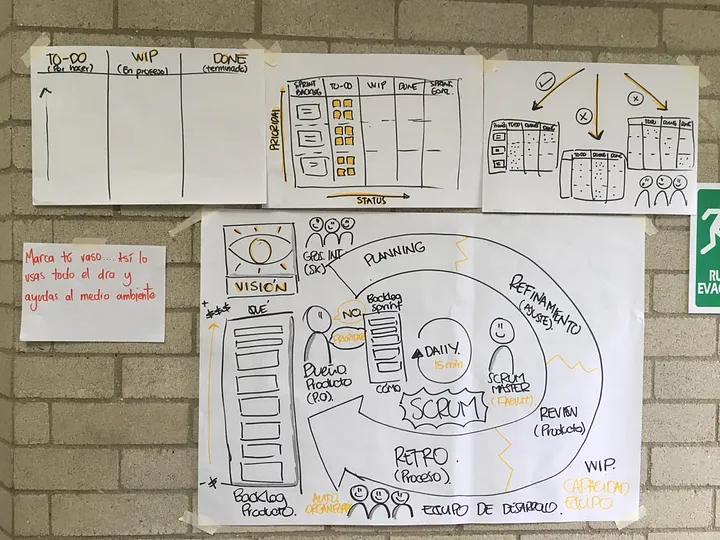 TO-DO
(Por hacer)
WIP
(En proceso)
DONE
(terminado)
SPRINT
BACKLOG
TO-DO
WIP
DONE
SPRINT
GOAL
PRIORIDAD
STATUS
TODO
DOING
DONE
TODO
DOING
DONE
TODO
DOING
DONE
Marca tú vaso.... Así lo
usas todo el dia y
ayudas al medio ambiente
VISIÓN
GPOS. INT.
(SK)
PLANNING
REFINAMIENTO
(AJUSTE)
REVIÉW
(Producto)
RETRO
(Proceso)
QUÉ
Backlog
Producto
NO
Dueño
Producto
(P.O.)
Backlog
Sprint
CÓMO
DAILY
15 min
SCRUM
MASTER
(FACILIT)
SCRUM
WIP
CAPACIDAD
EQUIPO
AUTO
ORGANIZADO
EQUIPO DE DESARROLLO
RU
EVAC